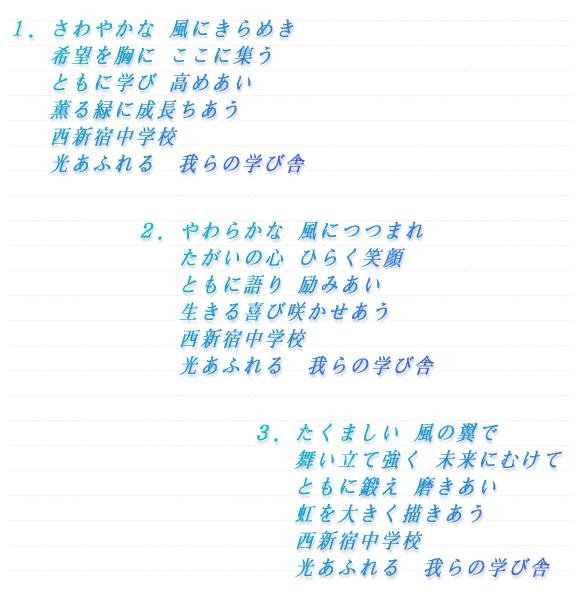 １．さわやかな 風にきらめき
希望を胸に ここに集う
ともに学び 高めあい
薫る緑に成長ちあう
西新宿中学校
光あふれる　我らの学び舎
２．やわらかな 風につつまれ
たがいの心 ひらく笑顔
ともに語り 励みあい
生きる喜び咲かせあう
西新宿中学校
光あふれる　我らの学び舎
３．たくましい 風の翼で
舞い立て強く 未来にむけて
ともに鍛え 磨きあい
虹を大きく描きあう
西新宿中学校
光あふれる　我らの学び舎